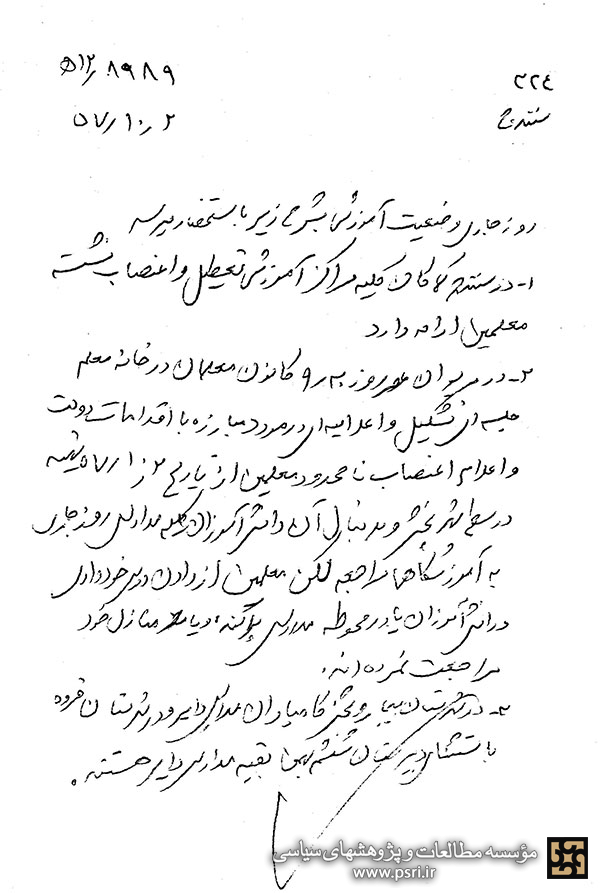 ۳۲۴
۵۱۲/۸۹۸۹
سنندج
۵۷/۱۰/۲
روز جاری وضعیت آموزش بشرح زیر باستحضار میرسد
۱- در سنندج کماکان کلیه مراکز آموزشی تعطیل و اعتصاب نشسته
معلمین ادامه دارد
۲- در مریوان روز کانون معلمان در خانه معلم
جلسه ای تشکیل و اعلامیه ای در مورد مبارزه با اقدامات دولت
و اعلام اعتصاب نامحدود معلمین از تاریخ ۵۷/۱۰/۲
در سطح شهر پخش و بدنبال آن دانش آموزان کلیه مدارس روز جاری
به آموزشگاهها مراجعه لکن معلمین از دادن درس خودداری
دانش آموزان یا در محوطه مدارس و یا منازل خود
مراجعت نموده اند.
۳- در شهرستان بیجار و بخش کامیاران مدارس دایر و در شهرستان قروه
باستثنای دبیرستان ششم بهمن بقیه مدارس دایر هستند.
مؤسسه مطالعات و پژوهشهای سیاسی
www.psri.ir